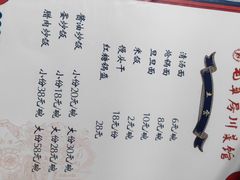 川菜馆
主食
清汤面 6元/碗
炝锅面 8元/碗
豆豆面 10元/碗
米饭 2元/碗
馒头干 18元
红糖锅盔 28元
酱油炒饭 小份20元/碗 大份30元/碗
蛋炒饭 小份18元/碗 大份28元/碗
腊肉炒饭 小份38元/碗 大份58元/碗